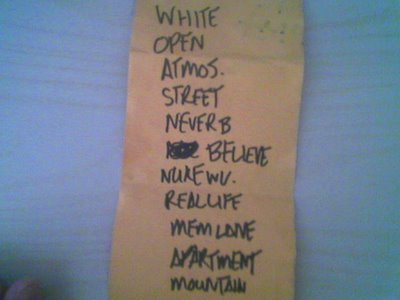 WHITE
OPEN
ATMOS.
STREET
NEVER B
BELIEVE
NUKE WU.
REAL LIFE
MEM LANE
APARTMENT
MOUNTAIN